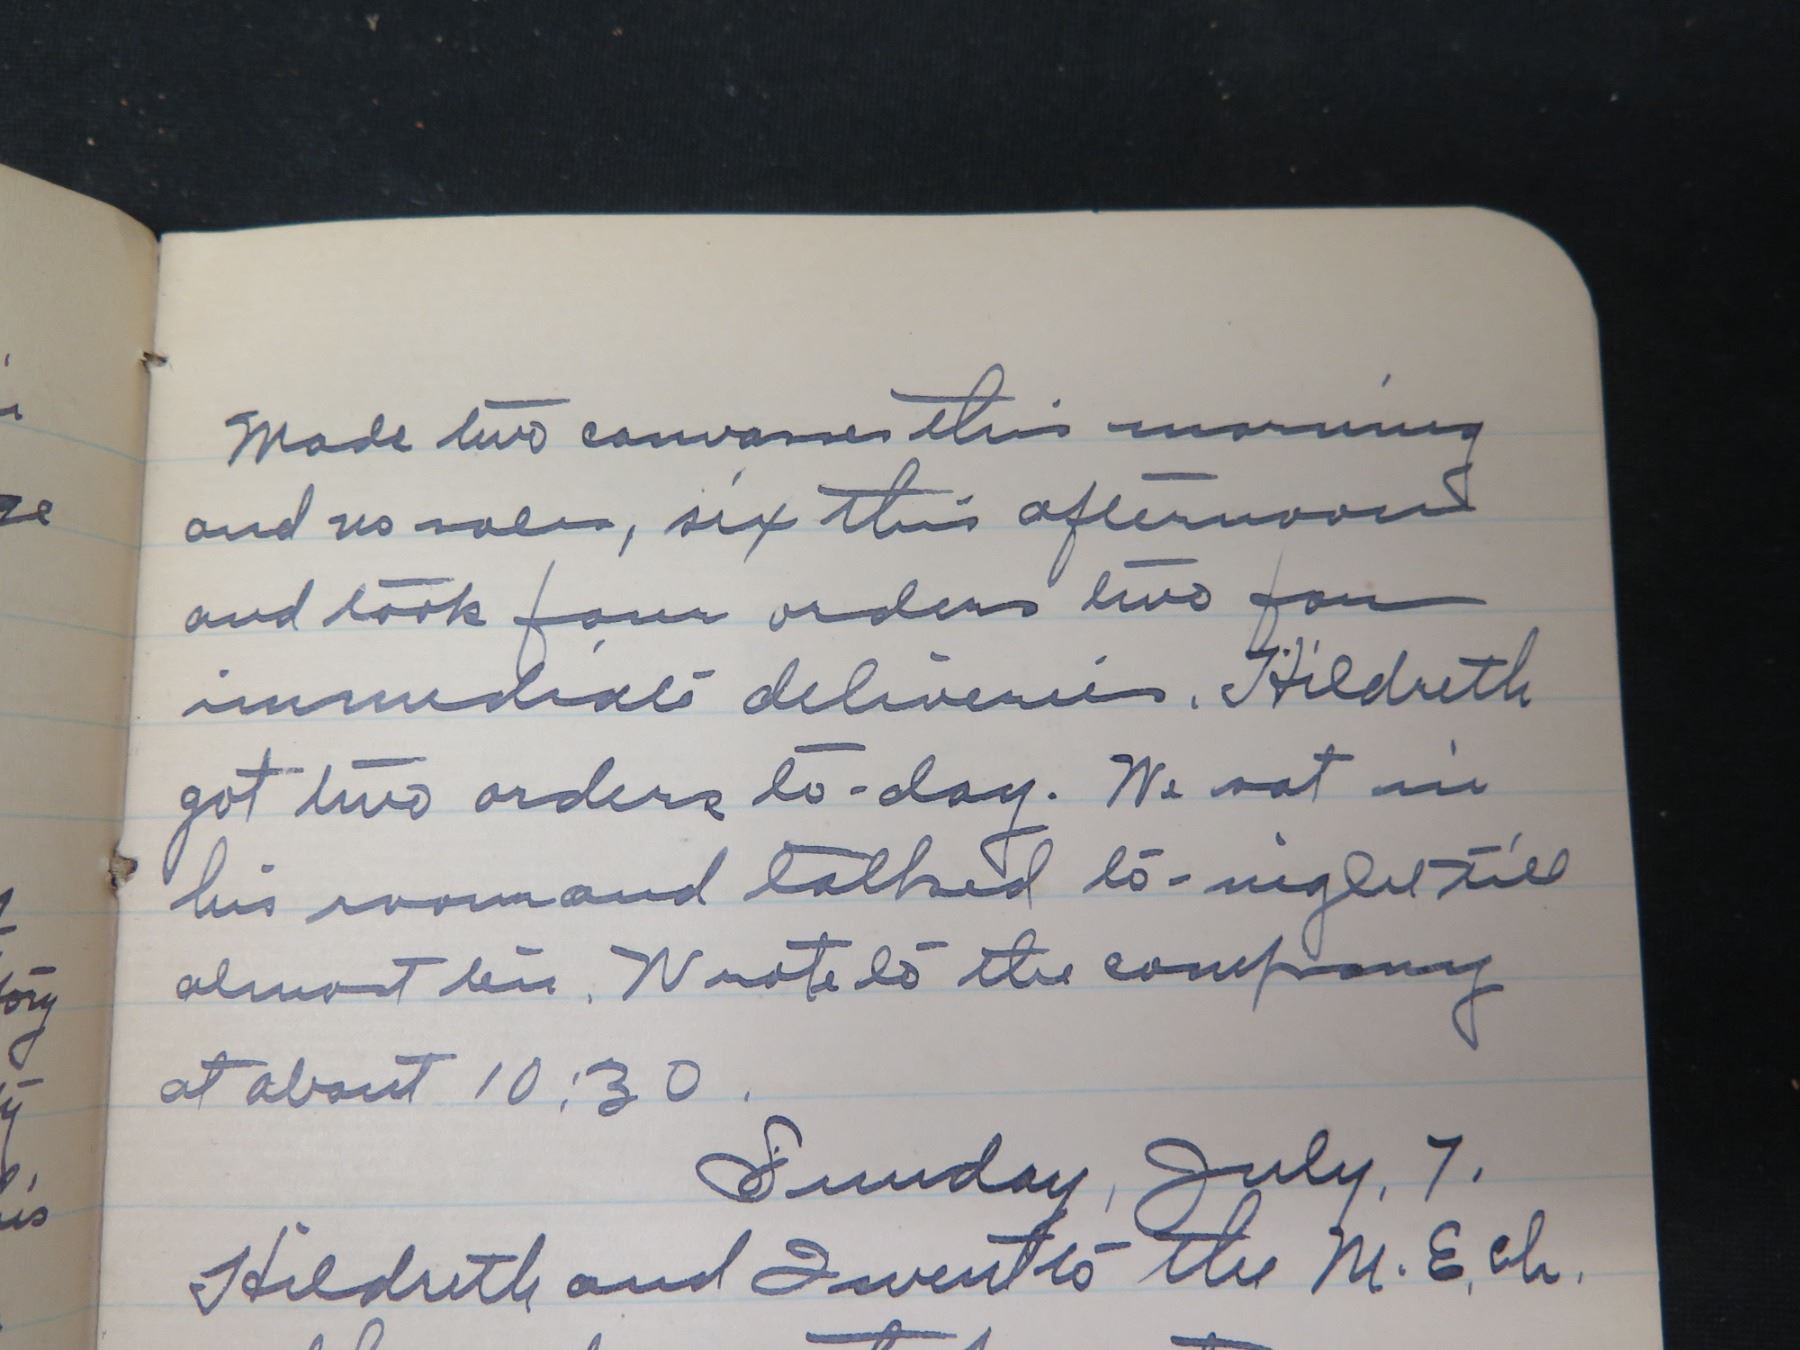 Made two canvasses this morning
and no sales, six this afternoon
and took four orders two for
immediate deliveries. Hildreth
got two orders to-day. We sat in
his room and talked to-night till
almost ten. Wrote to the company
at about 10:30.
Sunday, July, 7.
Hildreth and I went to the M.E. ch.